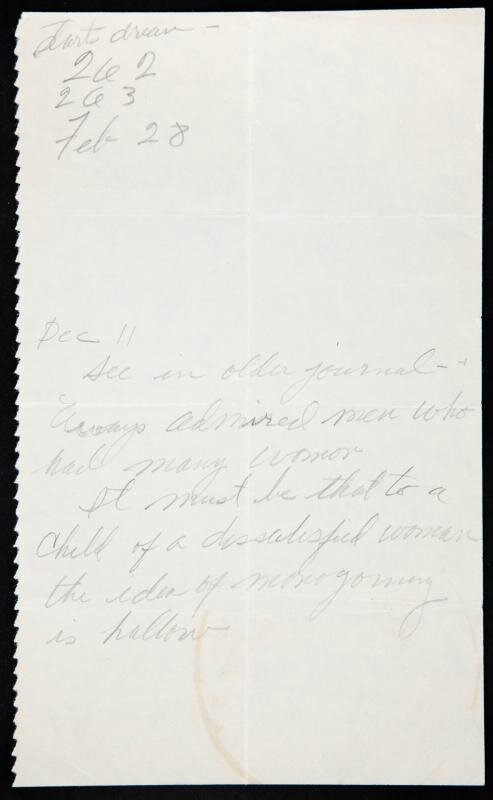 Start dream –
262
263
Feb 28
Dec 11
See in older journal –
always admired men who
had many womon
It must be that to a
child of a dissatesfied woman
the idea of monogomny
is hallow